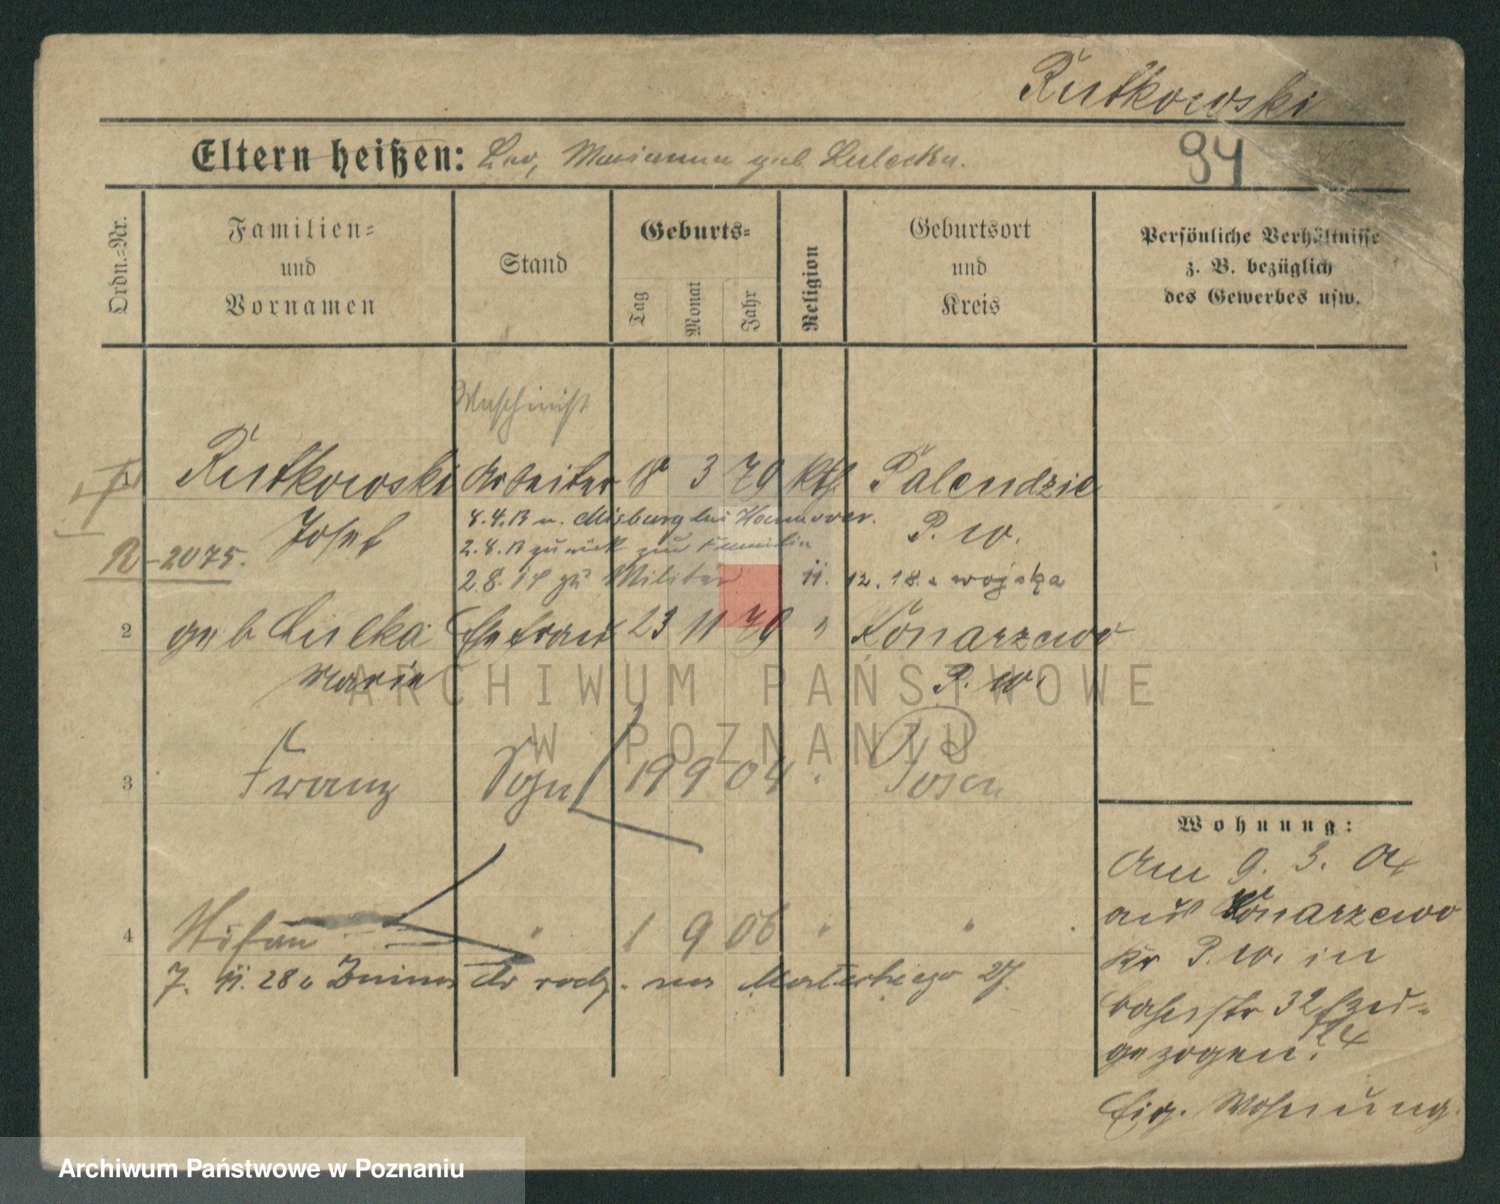 Rutkowski
94
Eltern heißen: Leo, Marianna geb.
Ordn.-Nr.
Familien-
und
Vornamen
Stand
Geburts-
Tag
Monat
Jahr
Religion
Geburtsort
und
Kreis
Persönliche Verhältnisse
z. B. bezüglich
des Gewerbes usw.
Maschinist
Rutkowski Arbeiter 8 3 79 Kth. Palendzie
Josef P. W.
4.4.13 n. Misburg bei Hannover.
R-2075.
2.8.13 zurück zur Familie
2.8.14 zu Militär 11. 12. 18. z wojska
2 geb Lulka Ehefrau 23 11 79 " Konarzewo
Marie P. W.
3 Franz Sohn 19 9 04 " Posen
4 Stefan " 1 9 06 " "
7. 11. 28 z Znina do rodz. na 27.
Wohnung:
Am 9. 3. 04
aus Konarzewo
Kr P. W. in
32 zu-
gezogen.
Eig. Wohnung.
ARCHIWUM PAŃSTWOWE
W POZNANIU
Archiwum Państwowe w Poznaniu